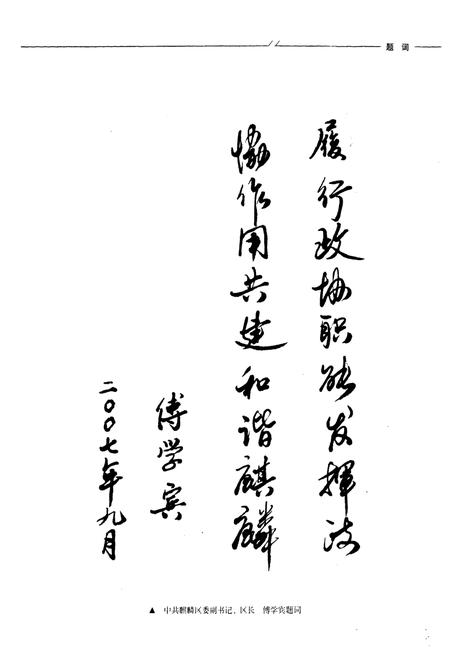 题 词
履行政协职能发挥政
协作用共建和谐麒麟
傅学宾
二〇〇七年九月
▲ 中共麒麟区委副书记、区长 傅学宾题词